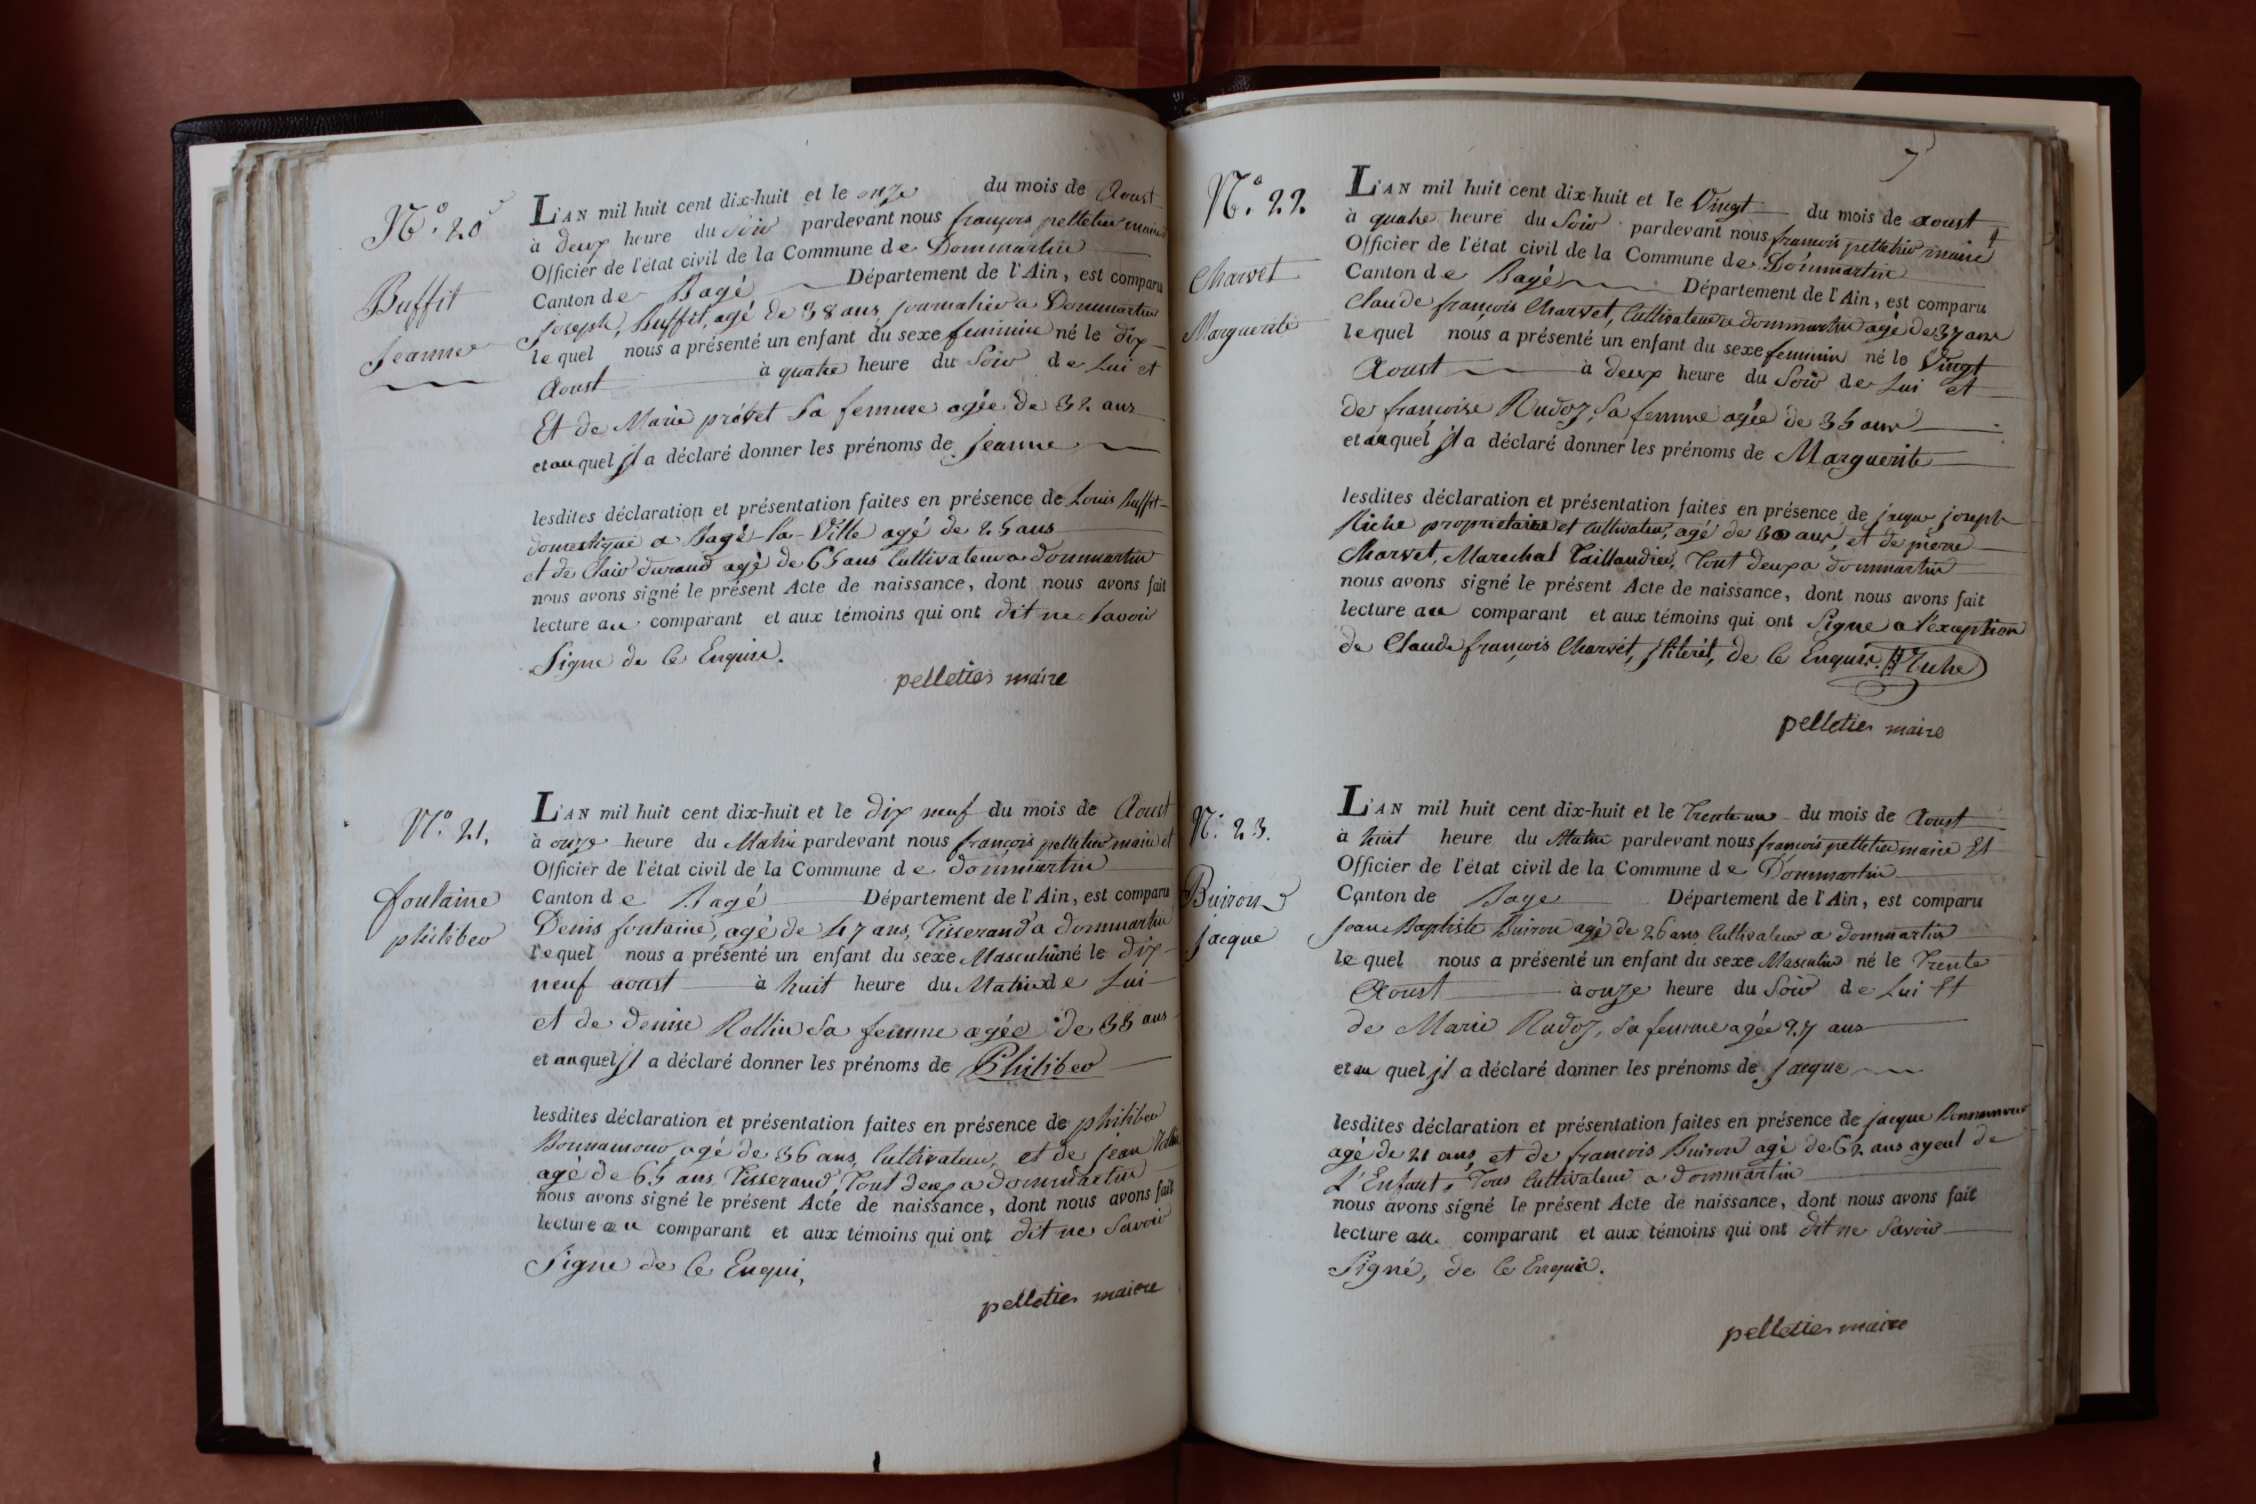 N.° 20
Buffit
Jeanne
L'AN mil huit cent dix-huit et le onze du mois de Aoust
à deux heure du Soir pardevant nous françois pelletier maire
Officier de l'état civil de la Commune de Dommartin
Canton de Bagé Département de l'Ain, est comparu
Joseph, Buffit, agé de 38 ans, journalier a Dommartin
lequel nous a présenté un enfant du sexe feminin né le dix
Aoust à quatre heure du Soir de Lui et
Et de Marie prévet Sa femme agée de 32 ans
et auquel jl a déclaré donner les prénoms de Jeanne
lesdites déclaration et présentation faites en présence de Louis Buffit
domestique a Bagé-la-Ville agé de 25 ans
et de Clair durand agé de 65 ans Cultivateur a dommartin
nous avons signé le présent Acte de naissance, dont nous avons fait
lecture au comparant et aux témoins qui ont dit ne Savoir
Signe de Ce Enquise.
pelletier maire
N.° 21.
fontaine
philiber
L'AN mil huit cent dix-huit et le dix neuf du mois de Aoust
à onze heure du Matin pardevant nous françois pelletier maire et
Officier de l'état civil de la Commune de dommartin
Canton de Bagé Département de l'Ain, est comparu
Denis fontaine, agé de 47 ans, Tisserand a dommartin
lequel nous a présenté un enfant du sexe Masculin né le dix
neuf aoust à huit heure du Matin de Lui
et de denise Rollin Sa femme agée de 33 ans
et auquel jl a déclaré donner les prénoms de Philiber
lesdites déclaration et présentation faites en présence de philiber
Bonnamour agé de 36 ans, Cultivateur, et de jean Rollin
agé de 65 ans Tisserand, Tout deux a dommartin
nous avons signé le présent Acte de naissance, dont nous avons fait
lecture au comparant et aux témoins qui ont dit ne Savoir
Signe de Ce Enqui,
pelletier maire
7
N.° 22.
Charvet
Marguerite
L'AN mil huit cent dix-huit et le Vingt du mois de aoust
à quatre heure du Soir pardevant nous françois pelletier maire et
Officier de l'état civil de la Commune de Dommartin
Canton de Bagé Département de l'Ain, est comparu
Claude françois Charvet, Cultivateur a dommartin agé de 37 ans
lequel nous a présenté un enfant du sexe feminin né le Vingt
Aoust à deux heure du Soir de Lui et
de françoise Rudoz, Sa femme agée de 35 ans
et auquel jl a déclaré donner les prénoms de Marguerite
lesdites déclaration et présentation faites en présence de jacque joseph
Riche proprietaire et cultivateur, agé de 30 ans, et de pierre
Charvet, Marechal Taillandier, Tout deux a dommartin
nous avons signé le présent Acte de naissance, dont nous avons fait
lecture au comparant et aux témoins qui ont Signe a l'exception
de Claude françois Charvet, jlliterét, de Ce Enquis. Riche
pelletier maire
N.° 23.
Buiron
jacque
L'AN mil huit cent dix-huit et le Trente un du mois de Aoust
à huit heure du Matin pardevant nous françois pelletier maire Et
Officier de l'état civil de la Commune de Dommartin
Canton de Bage Département de l'Ain, est comparu
Jean Baptiste Buiron agé de 26 ans Cultivateur a dommartin
lequel nous a présenté un enfant du sexe Masculin né le Trente
Aoust à onze heure du Soir de Lui Et
de Marie Rudoz, Sa femme agée 27 ans
et au quel jl a déclaré donner les prénoms de jacque
lesdites déclaration et présentation faites en présence de jacque Bonnamour
agé de 21 ans, et de françois Buiron agé de 62 ans ayeul de
L'Enfant, Tous Cultivateur a dommartin
nous avons signé le présent Acte de naissance, dont nous avons fait
lecture au comparant et aux témoins qui ont dit ne Savoir
Signé, de Ce Enquis.
pelletier maire